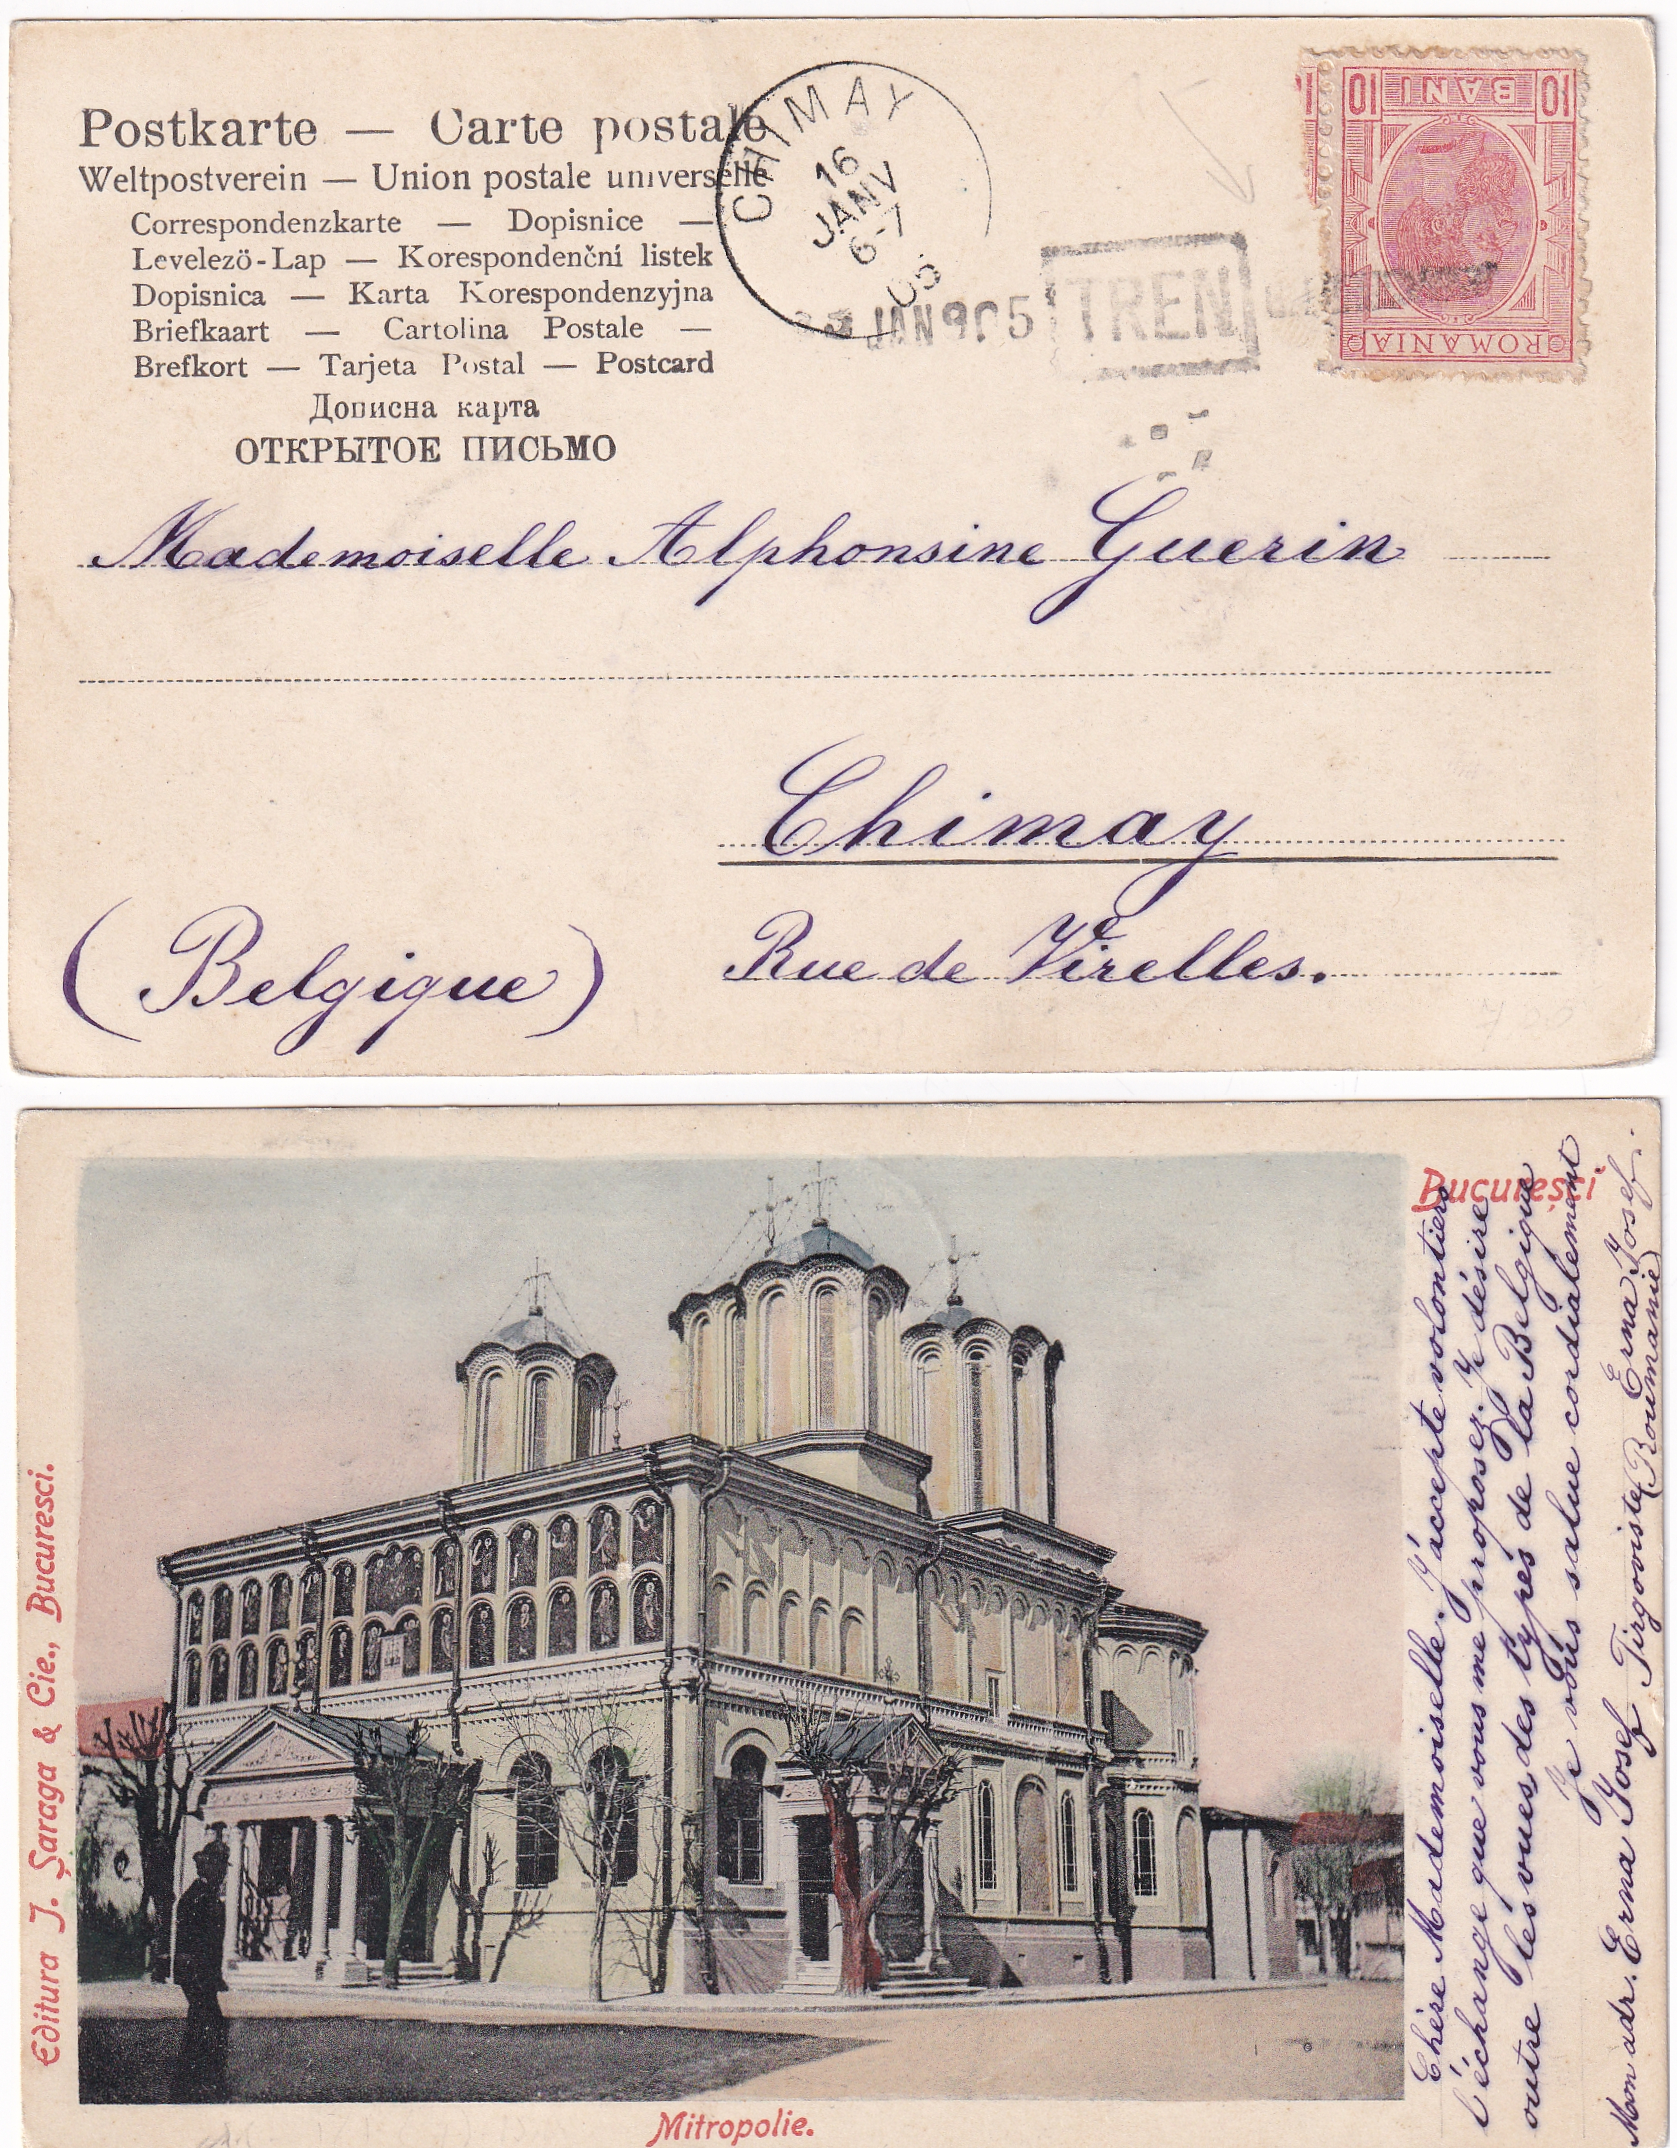 Postkarte — Carte postale
Weltpostverein — Union postale universelle
Correspondenzkarte — Dopisnice —
Levelezö-Lap — Korespondenční listek
Dopisnica — Karta Korespondenzyjna
Briefkaart — Cartolina Postale —
Brefkort — Tarjeta Postal — Postcard
Дописна карта
ОТКРЫТОЕ ПИСЬМО
CHIMAY
16
JANV
6-7
05
JAN 905
TREN
10 BANI 10
ROMANIA
Mademoiselle Alphonsine Guerin
Chimay
Rue de Virelles.
(Belgique)
București
Editura J. Șaraga & Cie., Bucuresci.
Mitropolie.
Chère Mademoiselle. J'accepte volontiers
l'échange que vous me proposez. Je désire
outre les vues, des types de la Belgique
Je vous salue cordialement
Erna Josef.
Mon adr. Erna Josef Tirgoviste (Roumanie)